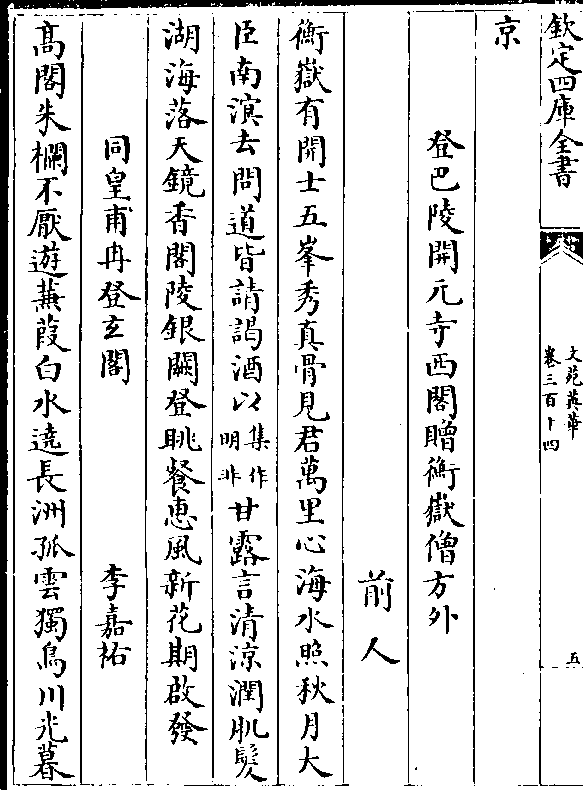 欽定四庫全書
文苑英華
卷三百十四
五
京
登巴陵開元寺西閣贈衡嶽僧方外
前人
衡嶽有開士五峯秀真骨見君萬里心海水照秋月大
臣南溟去問道皆請謁洒以集作明非甘露言清涼潤肌髮
湖海落天鏡香閣陵銀闕登眺餐惠風新花期啟發
同皇甫冉登玄閣
李嘉祐
高閣朱欄不厭遊蒹葭白水遶長洲孤雲獨鳥川光暮